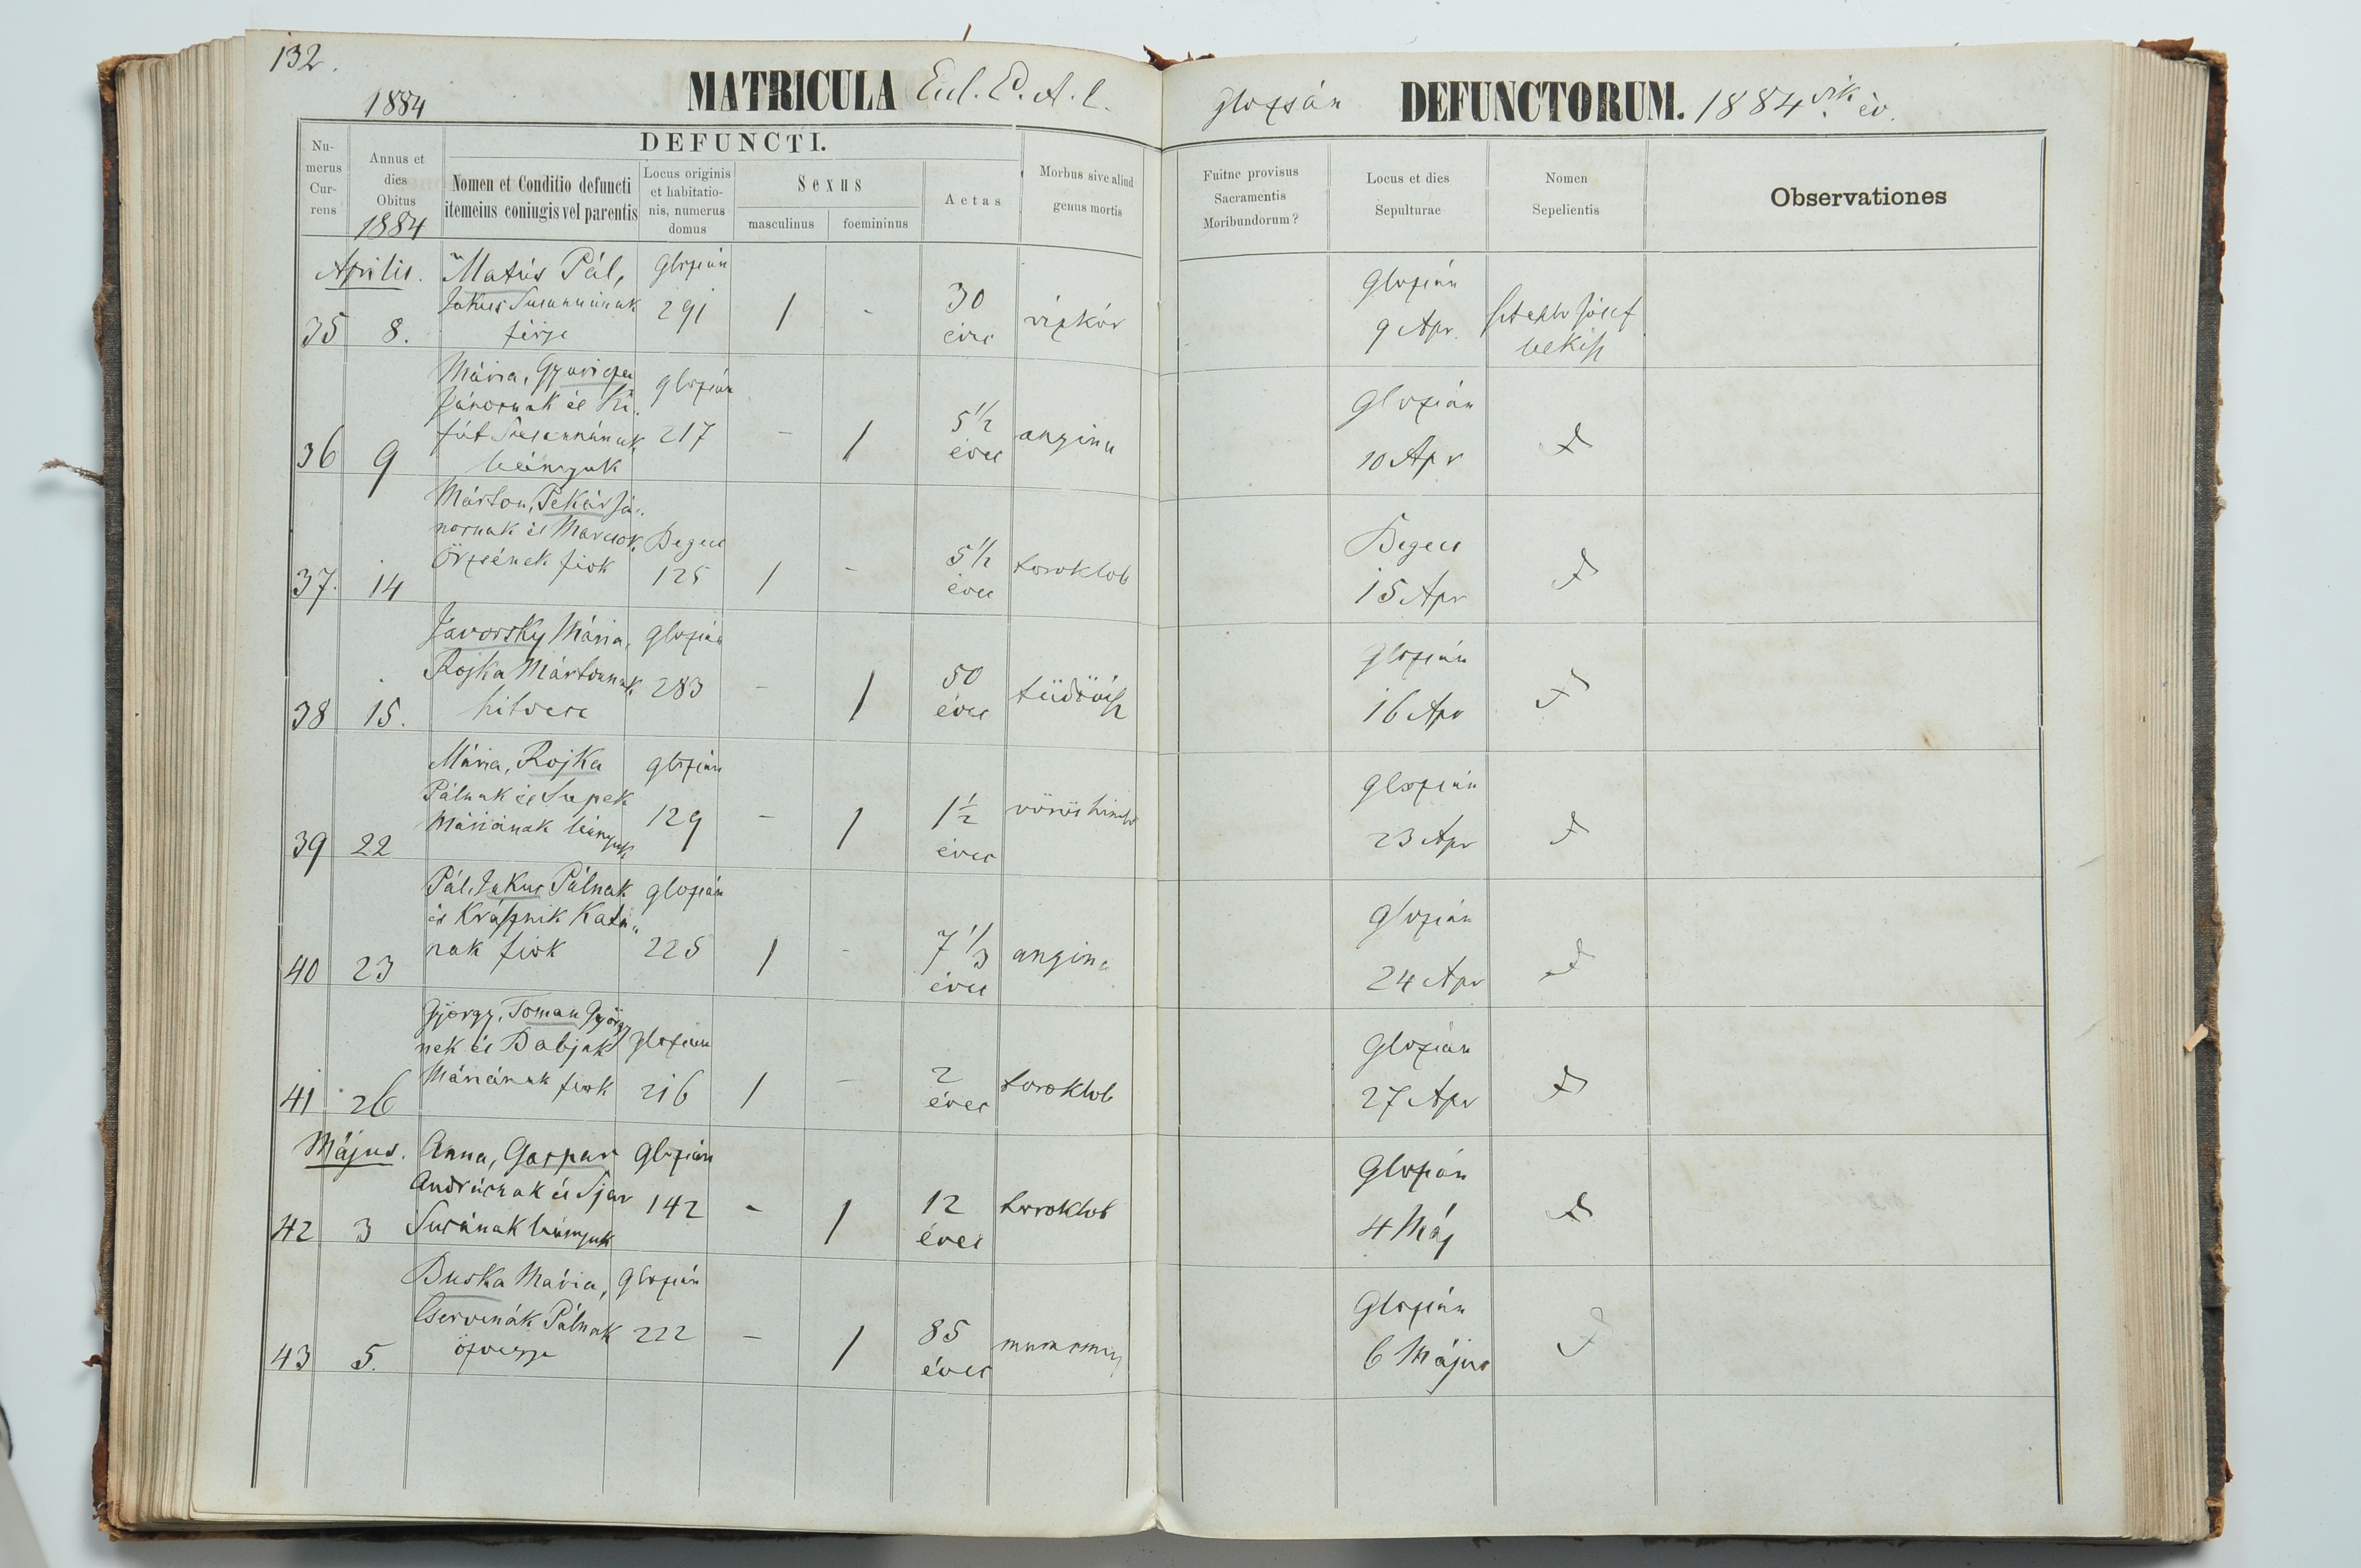 132.
1884
MATRICULA Eccl. E. A. C. Glozsán DEFUNCTORUM. 1884 vik év.
DEFUNCTI.
Numerus Currens
Annus et dies Obitus
1884
Nomen et Conditio defuncti itemeius coniugis vel parentis
Locus originis et habitationis, numerus domus
Sexus
masculinus
foemininus
Aetas
Morbus sive aliud genus mortis
Fuitne provisus Sacramentis Moribundorum?
Locus et dies Sepulturae
Nomen Sepelientis
Observationes
Aprilis. Matús Pál, Glozsán
Jakus Susannának 291
35 8. férje 1 - 30 éves vízkór Glozsán 9 Apr. József lelkész
Mária, Gyuricza Glozsán
Jánosnak és Ki-
fút Susannának 217
36 9 leányuk - 1 5 1/2 éves angina Glozsán 10 Apr
Márton, Pekár Já-
nosnak és Marcsok Begecs
Örzsének fiok 125
37. 14 1 - 5 1/2 éves toroklob Begecs 15 Apr
Javorsky Mária, Glozsán
Rojka Mártonnak 283
38 15. hitvese - 1 50 éves tüdővész Glozsán 16 Apr
Mária, Rojka Glozsán
Pálnak és Supek
Máriának leányuk 129
39 22 - 1 1 1/2 éves vörös himlő Glozsán 23 Apr
Pál, Jakus Pálnak Glozsán
és Krásznik Kata-
nak fiok 225
40 23 1 - 7 1/3 éves angina Glozsán 24 Apr
György, Toman György
nek és Babjak Glozsán
Máriának fiok 216
41 26 1 - 2 éves toroklob Glozsán 27 Apr
Május. Anna, Gaspar Glozsán
Andrásnak és Sjar 142
42 3 Susának leányuk - 1 12 éves toroklob Glozsán 4 Máj
Buska Mária, Glozsán
Cservenák Pálnak 222
43 5. özvegye - 1 85 éves Glozsán 6 Május